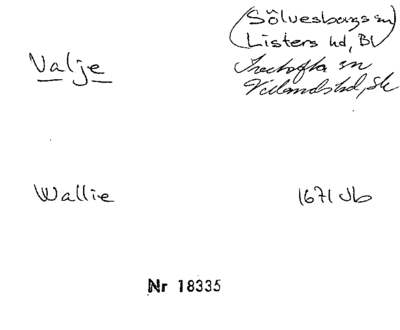 Valje
(Sölvesborgs sn)
Listers hd, Bl
Ivetofta sn
Villands hd, Sk
Wallie
1671 Jb
Nr 18335